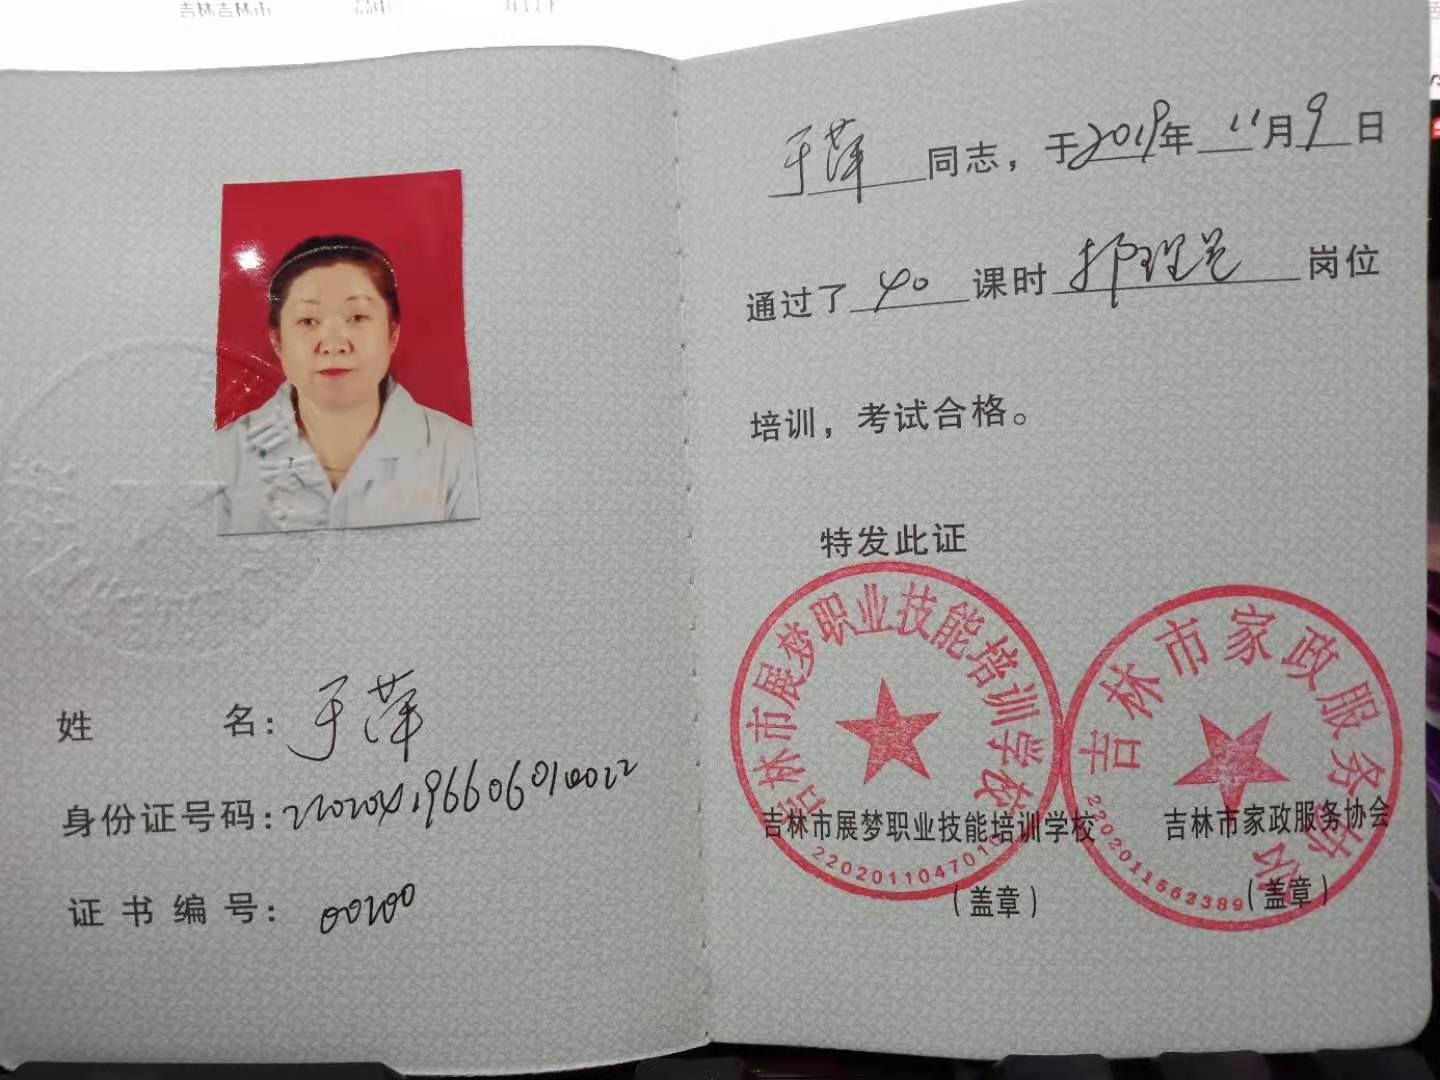 吉林吉林市
姓 名：于萍
身份证号码：220204196606010022
证书编号：00200
于萍同志，于2019年11月9日
通过了40课时护理员岗位
培训，考试合格。
特发此证
吉林市展梦职业技能培训学校
2202011047010
吉林市家政服务协会
2202011562389
吉林市展梦职业技能培训学校
（盖章）
吉林市家政服务协会
（盖章）